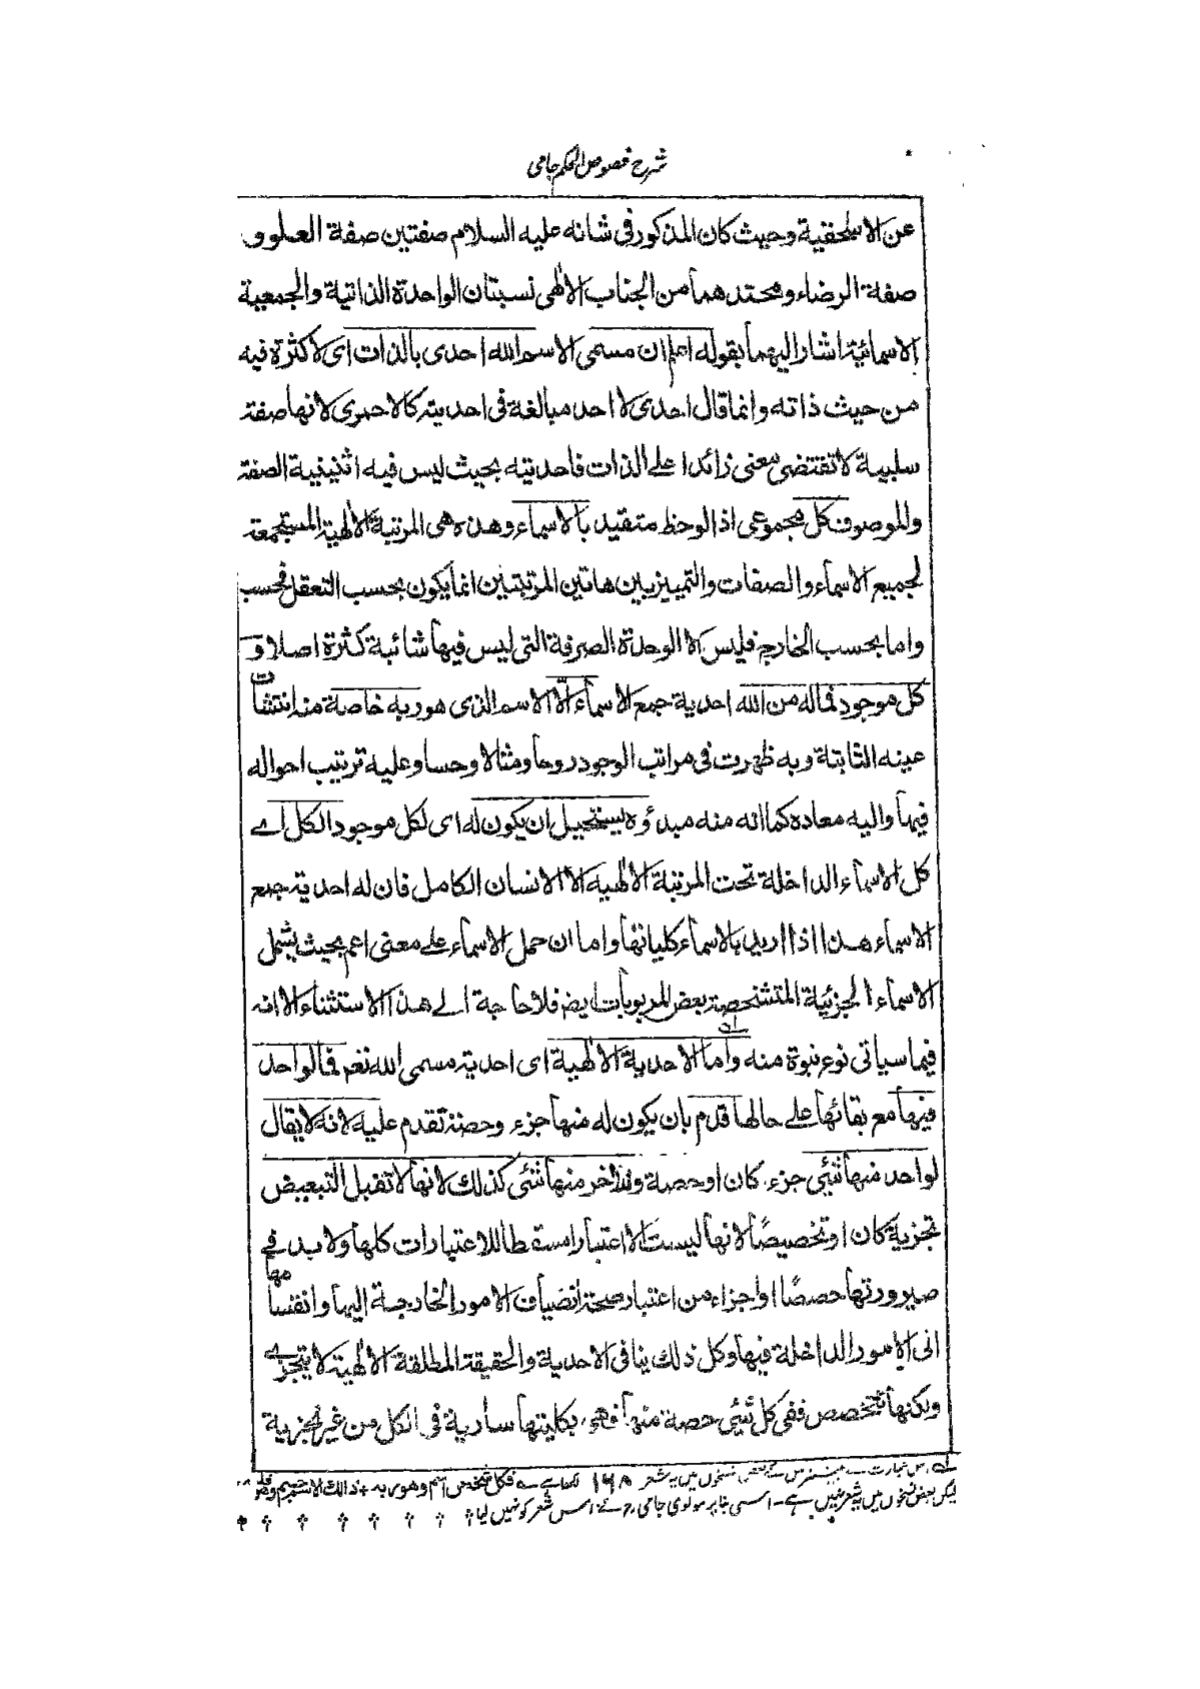 شرح فصوص الحکم جامی
عن الاستحقية وحيث كان المذكور فى شانه عليه السلام صفتين صفة العلو و
صفة الرضاء ومحتدهما من الجناب الالٰهى نسبتان الواحدة الذاتية والجمعية
الاسمائية اشار اليهما بقوله اعلم ان مسمى الاسم الله احدى بالذات اى لا كثرة فيه
من حيث ذاته وانما قال احدى لا احد مبالغة فى احديته كالاحمرى لانها صفة
سلبية لا تقتضى معنى زائدا على الذات فاحديته بحيث ليس فيه اثنينية الصفة
والموصوف كل مجموعى اذا لوحظ متقيد بالاسماء وهذه هى المرتبة الالٰهية المستجمعة
لجميع الاسماء والصفات والتمييز بين هاتين المرتبتين انما يكون بحسب التعقل فحسب
واما بحسب الخارج فليس الا الوحدة الصرفة التى ليس فيها شائبة كثرة اصلا و
كل موجود فماله من الله احدية جمع الاسماء الّا الاسم الذى هو ربه خاصة منه انتشأت
عينه الثابتة وبه ظهرت فى مراتب الوجود روحا ومثالا وحسا وعليه ترتيب احواله
فيها واليه معاده كما انه منه مبدؤه يستحيل ان يكون له اى لكل موجود الكل اے
كل الاسماء الداخلة تحت المرتبة الالٰهية الا الانسان الكامل فان له احدية جمع
الاسماء هذا اذا اريد بالاسماء كلياتها واما ان حمل الاسماء على معنى اعم بحيث يشمل
الاسماء الجزئية المتشخصة بعض المربوبات ايضا فلا حاجة الے هذا الاستثناء الا انه
فيما سياتى نوع نبوة منه واما الاحدية الالٰهية اى احدية مسمى الله نعم فما لواحد
فيها مع بقائها على حالها قدم بان يكون له منها جزء وحصة تقدم عليه لانه لا يقال
لواحد منها شئى جزء كان او حصة ولآخر منها شئى كذلك لانها لا تقبل التبعيض
تجزية كان او تخصيصًا لانها ليست الا اعتبارا مسقطا للاعتبارات كلها ولا بد فى
صيرورتها حصصًا او اجزاء من اعتبار صحة انضياف الامور الخارجة اليها وانقسامها
الى الامور الداخلة فيها وكل ذلك ينافى الاحدية والحقيقة المطلقة الالٰهية لا يتجزے
ولكنها تتخصص ففى كل شئى حصة منها فهى بكليتها سارية فى الكل من غير تجزية
نسخوں میں یہ شعر ۱۶۸ لکھا ہے فكل شخص اسم وهو ربه ذالك
لیکن بعض نسخوں میں یہ شعر نہیں ہے۔ اسی بنا پر مولوی جامی نے اس شعر کو نہیں لیا